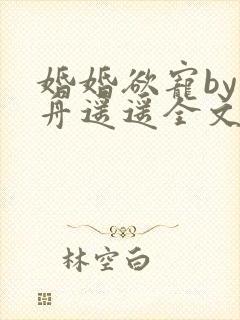 婚婚欲寵by
丹遥遥全文
林空白